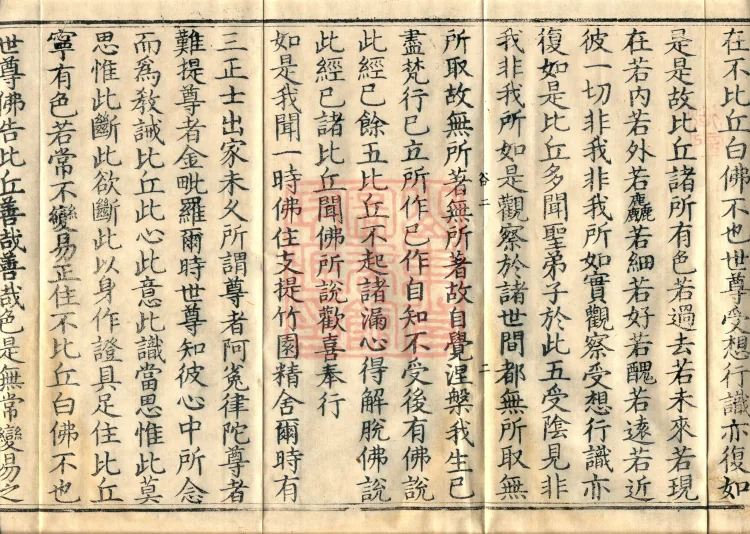 在不比丘白佛不也世尊受想行識亦復如
是是故比丘諸所有色若過去若未來若現
在若內若外若麤若細若好若醜若遠若近
彼一切非我非我所如實觀察受想行識亦
復如是比丘多聞聖弟子於此五受陰見非
我非我所如是觀察於諸世間都無所取無
谷二 二
所取故無所著無所著故自覺涅槃我生已
盡梵行已立所作已作自知不受後有佛說
此經已餘五比丘不起諸漏心得解脫佛說
此經已諸比丘聞佛所說歡喜奉行
如是我聞一時佛住支提竹園精舍爾時有
三正士出家未久所謂尊者阿㝹律陀尊者
難提尊者金毗羅爾時世尊知彼心中所念
而為教誡比丘此心此意此識當思惟此莫
思惟此斷此欲斷此以身作證具足住比丘
寧有色若常不變易正住不比丘白佛不也
世尊佛告比丘善哉善哉色是無常變易之